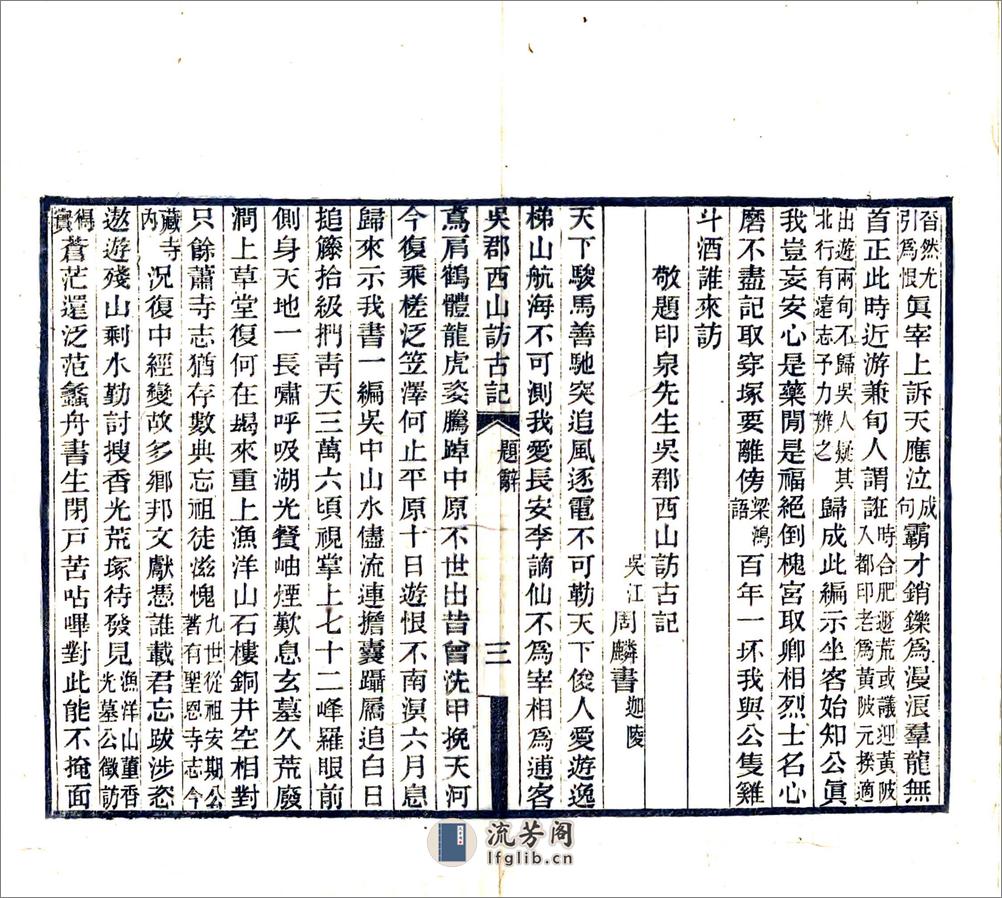 沓然尤引爲恨眞宰上訴天應泣成句霸才銷鑠爲漫浪羣龍無
首正此時近游兼旬人謂誑時合肥遯荒或議迎黃陂入都印老爲黃陂元揆適
出遊兩旬不歸吳人疑其北行有遠志予力辨之歸成此編示坐客始知公眞
我豈妄安心是藥閒是福絕倒槐宮取卿相烈士名心
磨不盡記取穿塚要離傍梁鴻語百年一抔我與公隻雞
斗酒誰來訪
敬題印泉先生吳郡西山訪古記
吳江周麟書迦陵
天下駿馬善馳突追風逐電不可勒天下俊人愛遊逸
梯山航海不可測我愛長安李謫仙不爲宰相爲逋客
吳郡西山訪古記
題辭
三
鳶肩鶴體龍虎姿騰踔中原不世出昔曾洗甲挽天河
今復乘槎泛笠澤何止平原十日遊恨不南溟六月息
歸來示我書一編吳中山水儘流連擔囊躡屩追白日
搥籐拾級捫靑天三萬六頃視掌上七十二峰羅眼前
側身天地一長嘯呼吸湖光餐岫煙歎息玄墓久荒廢
澗上草堂復何在朅來重上漁洋山石樓銅井空相對
只餘蕭寺志猶存數典忘祖徒滋愧九世從祖安期公著有聖恩寺志今
藏寺內況復中經變故多鄉邦文獻憑誰載君忘跋涉恣
遨遊殘山剩水勤討搜香光荒塚待發見漁洋山董香光墓公徵訪
得實蒼茫還泛范蠡舟書生閉戸苦呫嗶對此能不掩面
流芳阁
lfglib.cn